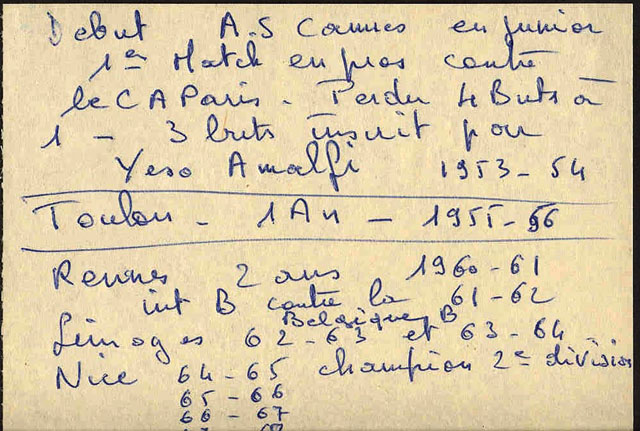 Debut A.S Cannes en junior
1er Match en pros contre
le C A Paris - Perdu 4 Buts à
1 - 3 buts inscrit par
Yeso Amalfi 1953-54
Toulon - 1 An - 1955-56
Rennes 2 ans 1960-61
int B contre la 61-62
Belgique B
Limoges 62-63 et 63-64
Nice 64-65 champion 2e division
65-66
66-67